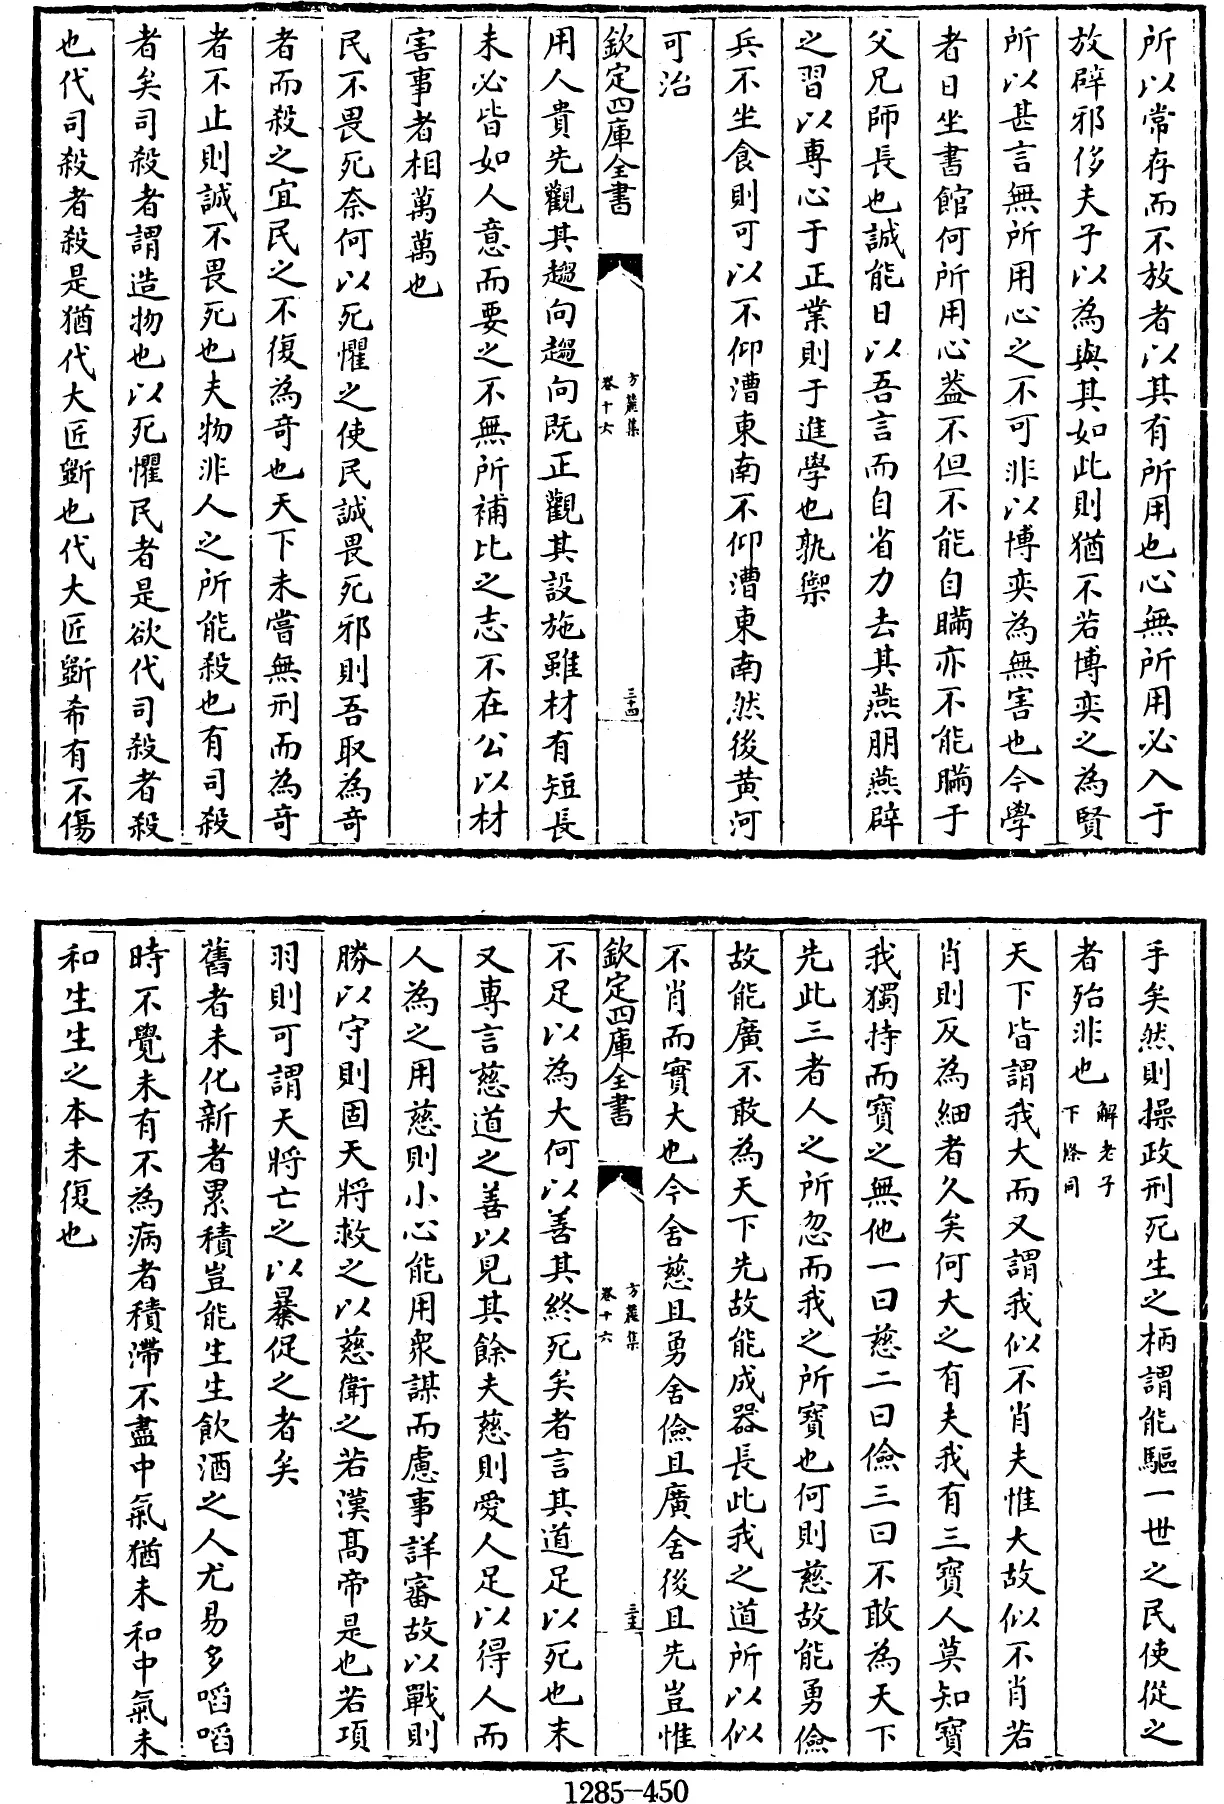 所以常存而不放者以其有所用也心無所用必入于
放辟邪侈夫子以為與其如此則猶不若博奕之為賢
所以甚言無所用心之不可非以博奕為無害也今學
者日坐書館何所用心葢不但不能自瞞亦不能瞞于
父兄師長也誠能日以吾言而自省力去其燕朋燕辟
之習以專心于正業則于進學也孰禦
兵不坐食則可以不仰漕東南不仰漕東南然後黄河
可治
欽定四庫全書
方麓集
卷十六
三十四
用人貴先觀其趨向趨向既正觀其設施雖材有短長
未必皆如人意而要之不無所補比之志不在公以材
害事者相萬萬也
民不畏死奈何以死懼之使民誠畏死邪則吾取為奇
者而殺之宜民之不復為奇也天下未嘗無刑而為奇
者不止則誠不畏死也夫物非人之所能殺也有司殺
者矣司殺者謂造物也以死懼民者是欲代司殺者殺
也代司殺者殺是猶代大匠斵也代大匠斵希有不傷
手矣然則操政刑死生之柄謂能驅一世之民使從之
者殆非也解老子
下條同
天下皆謂我大而又謂我似不肖夫惟大故似不肖若
肖則反為細者久矣何大之有夫我有三寳人莫知寳
我獨持而寳之無他一曰慈二曰儉三曰不敢為天下
先此三者人之所忽而我之所寳也何則慈故能勇儉
故能廣不敢為天下先故能成器長此我之道所以似
不肖而實大也今舍慈且勇舍儉且廣舍後且先豈惟
欽定四庫全書
方麓集
卷十六
三十五
不足以為大何以善其終死矣者言其道足以死也末
又專言慈道之善以見其餘夫慈則愛人足以得人而
人為之用慈則小心能用衆謀而慮事詳審故以戰則
勝以守則固天將救之以慈衛之若漢高帝是也若項
羽則可謂天將亡之以暴促之者矣
舊者未化新者累積豈能生生飲酒之人尤易多㗖㗖
時不覺未有不為病者積滯不盡中氣猶未和中氣未
和生生之本未復也
1285-450